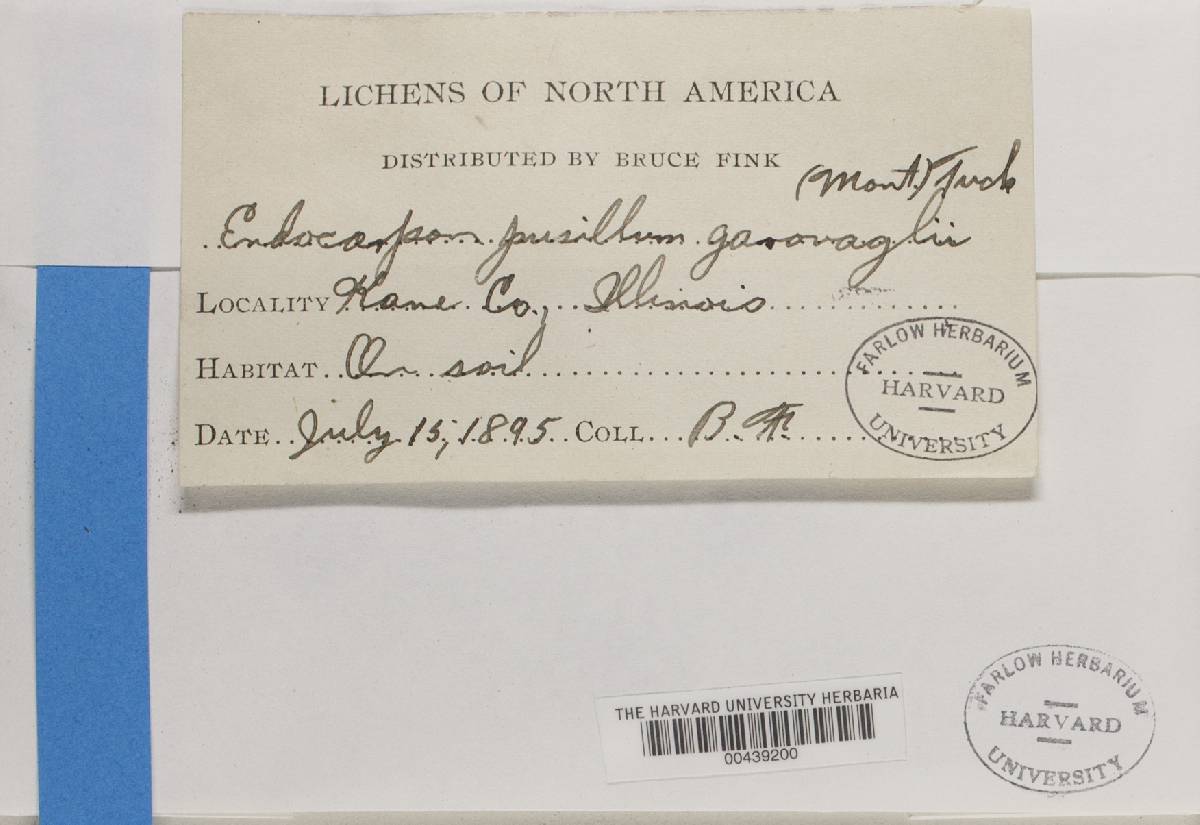 LICHENS OF NORTH AMERICA
DISTRIBUTED BY BRUCE FINK
(Mont.) Tuck
Endocarpon pusillum garovaglii
LOCALITY Kane Co., Illinois
HABITAT On soil
DATE July 15, 1895 COLL B. F.
FARLOW HERBARIUM
HARVARD
UNIVERSITY
THE HARVARD UNIVERSITY HERBARIA
00439200
FARLOW HERBARIUM
HARVARD
UNIVERSITY